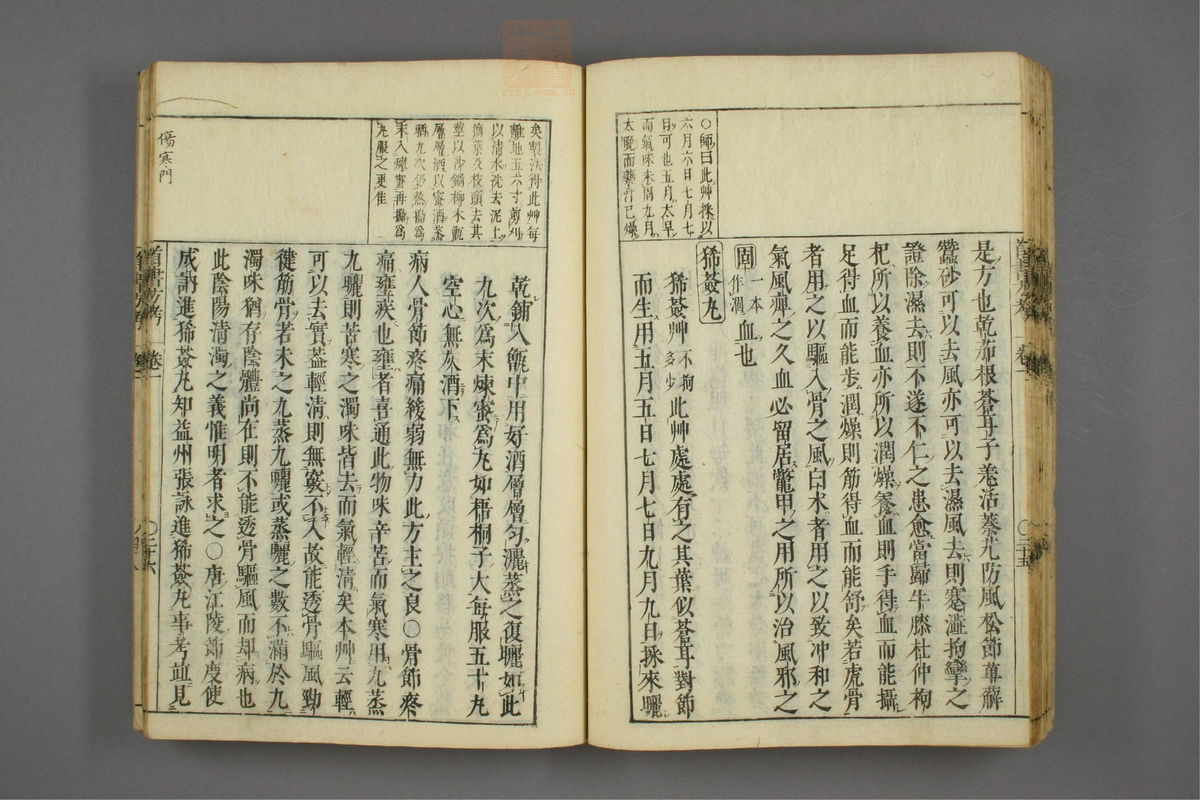 ○師曰此艸採以
六月六日七月七
日可也五月太早
而氣味未全九月
太晚而藥汁已燥
是方也乾茄根蒼耳子羌活秦艽防風松節萆薢
蠶砂可以去風亦可以去濕風去則蹇澁拘攣之
證除濕去則不遂不仁之患愈當歸牛膝杜仲枸
杞所以養血亦所以潤燥養血則手得血而能攝
足得血而能步潤燥則筋得血而能舒矣若虎骨
者用之以驅入骨之風白术者用之以致冲和之
氣風痺之久血必留居鱉甲之用所以治風邪之
固一本作涸血也
豨薟丸
豨薟艸不拘多少此艸處處有之其葉似蒼耳對節
而生用五月五日七月七日九月九日採來曬
○三十五
矣製法得此艸每
離地五六寸剪刈
以清水洗去泥土
摘葉及枝頭去其
莖以沙鍋柳木甑
層層酒以蜜酒蒸
曬九次仍蒸搗為
末入煉蜜再搗為
丸服之更佳
傷寒門
乾鋪入甑中用好酒層層匀灑蒸之復曬如此
九次爲末煉蜜爲丸如梧桐子大每服五十丸
空心無灰酒下
病人骨節疼痛緩弱無力此方主之良○骨節疼
痛壅疾也壅者喜通此物味辛苦而氣寒用九蒸
九曬則苦寒之濁味皆去而氣輕清矣本艸云輕
可以去實葢輕清則無竅不入故能透骨驅風勁
健筋骨若未之九蒸九曬或蒸曬之數不滿於九
濁味猶存陰體尚在則不能透骨驅風而却病也
此陰陽清濁之義惟明者求之○唐江陵節度使
成訥進豨薟丸知益州張詠進豨薟丸事考並見
卷一
○三十六